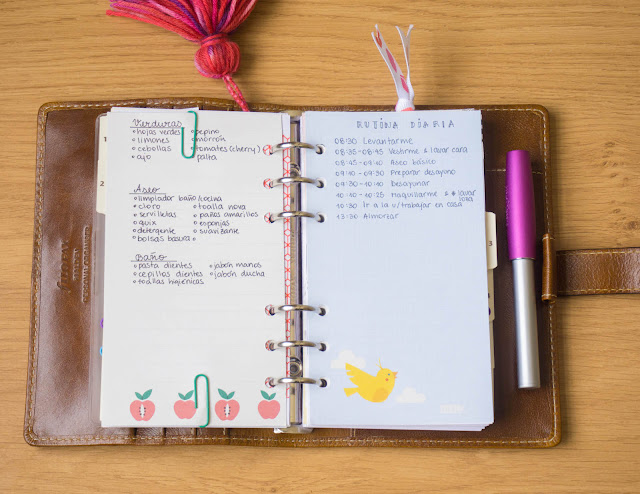 Verduras
hojas verdes
limones
cebollas
ajo
pepino
morrón
tomates (cherry)
palta
Aseo
limpiador baño/cocina
cloro
servilletas
quix
detergente
bolsas basura
toalla nova
paños amarillos
esponjas
suavizante
Baño
pasta dientes
cepillos dientes
toallas higiénicas
jabón manos
jabón ducha
RUTINA DIARIA
08:30 Levantarme
08:35-08:45 Vestirme & lavar cara
08:45-09:10 Aseo básico
09:10-09:30 Preparar desayuno
09:30-10:10 Desayunar
10:10-10:25 Maquillarme & lavar loza
10:30 Ir a la u/trabajar en casa
13:30 Almorzar
1
2
3